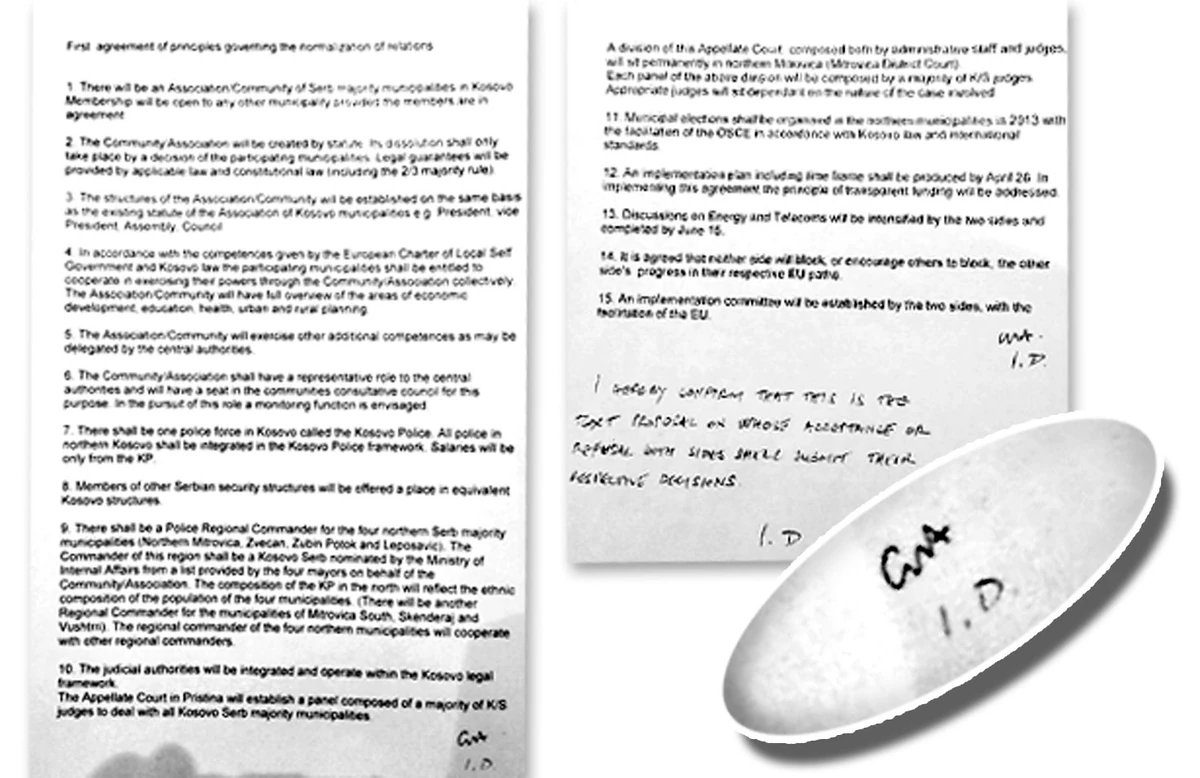 First agreement of principles governing the normalization of relations
1. There will be an Association/Community of Serb majority municipalities in Kosovo
Membership will be open to any other municipality provided the members are in
agreement
2. The Community/Association will be created by statute. Its dissolution shall only
take place by a decision of the participating municipalities. Legal guarantees will be
provided by applicable law and constitutional law (including the 2/3 majority rule)
3. The structures of the Association/Community will be established on the same basis
as the existing statute of the Association of Kosovo municipalities e.g. President, vice
President, Assembly, Council
4. In accordance with the competences given by the European Charter of Local Self
Government and Kosovo law the participating municipalities shall be entitled to
cooperate in exercising their powers through the Community/Association collectively.
The Association/Community will have full overview of the areas of economic
development, education, health, urban and rural planning.
5. The Association/Community will exercise other additional competences as may be
delegated by the central authorities.
6. The Community/Association shall have a representative role to the central
authorities and will have a seat in the communities consultative council for this
purpose. In the pursuit of this role a monitoring function is envisaged
7. There shall be one police force in Kosovo called the Kosovo Police. All police in
northern Kosovo shall be integrated in the Kosovo Police framework. Salaries will be
only from the KP.
8. Members of other Serbian security structures will be offered a place in equivalent
Kosovo structures.
9. There shall be a Police Regional Commander for the four northern Serb majority
municipalities (Northern Mitrovica, Zvecan, Zubin Potok and Leposavic). The
Commander of this region shall be a Kosovo Serb nominated by the Ministry of
Internal Affairs from a list provided by the four mayors on behalf of the
Community/Association. The composition of the KP in the north will reflect the ethnic
composition of the population of the four municipalities. (There will be another
Regional Commander for the municipalities of Mitrovica South, Skenderaj and
Vushtrri). The regional commander of the four northern municipalities will cooperate
with other regional commanders.
10. The judicial authorities will be integrated and operate within the Kosovo legal
framework.
The Appellate Court in Pristina will establish a panel composed of a majority of K/S
judges to deal with all Kosovo Serb majority municipalities
I.D.
A division of this Appellate Court, composed both by administrative staff and judges,
will sit permanently in northern Mitrovica (Mitrovica District Court).
Each panel of the above division will be composed by a majority of K/S judges.
Appropriate judges will sit dependant on the nature of the case involved
11. Municipal elections shall be organised in the northern municipalities in 2013 with
the facilitation of the OSCE in accordance with Kosovo law and international
standards.
12. An implementation plan including time frame shall be produced by April 26. In
implementing this agreement the principle of transparent funding will be addressed.
13. Discussions on Energy and Telecoms will be intensified by the two sides and
completed by June 15.
14. It is agreed that neither side will block, or encourage others to block, the other
side's progress in their respective EU paths.
15. An implementation committee will be established by the two sides, with the
facilitation of the EU.
I.D.
I HEREBY CONFIRM THAT THIS IS THE
TEXT PROPOSAL ON WHOSE ACCEPTANCE OR
REFUSAL BOTH SIDES SHALL SUBMIT THEIR
RESPECTIVE DECISIONS.
I. D
I. D.